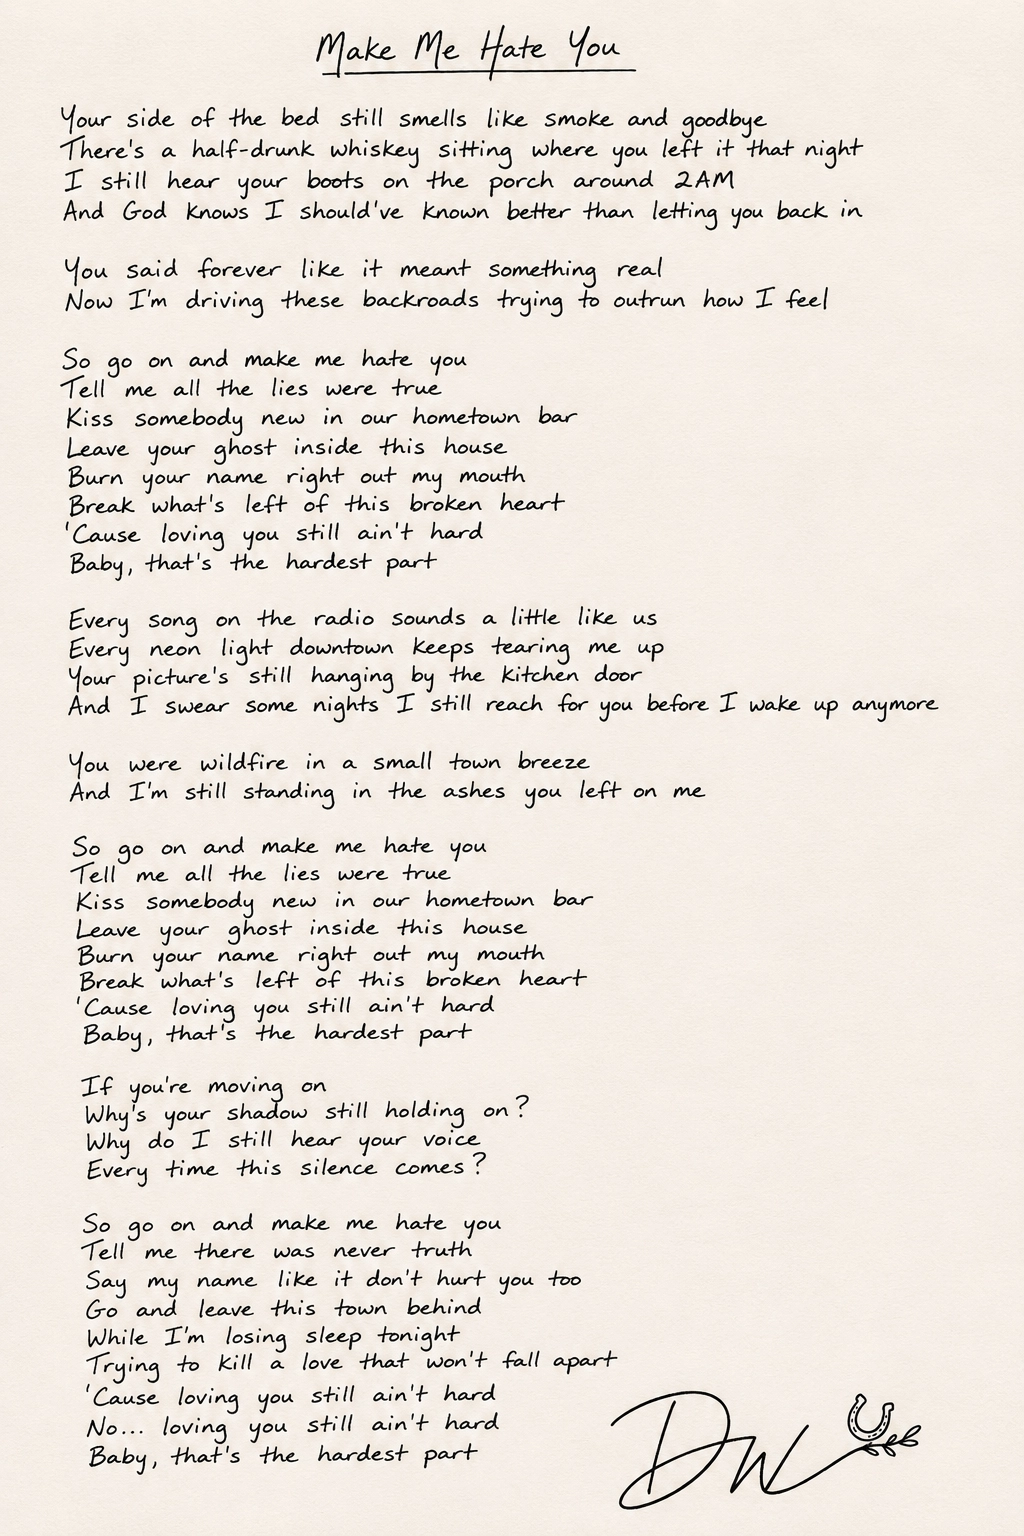 Make Me Hate You
Your side of the bed still smells like smoke and goodbye
There's a half-drunk whiskey sitting where you left it that night
I still hear your boots on the porch around 2AM
And God knows I should've known better than letting you back in
You said forever like it meant something real
Now I'm driving these backroads trying to outrun how I feel
So go on and make me hate you
Tell me all the lies were true
Kiss somebody new in our hometown bar
Leave your ghost inside this house
Burn your name right out my mouth
Break what's left of this broken heart
'Cause loving you still ain't hard
Baby, that's the hardest part
Every song on the radio sounds a little like us
Every neon light downtown keeps tearing me up
Your picture's still hanging by the kitchen door
And I swear some nights I still reach for you before I wake up anymore
You were wildfire in a small town breeze
And I'm still standing in the ashes you left on me
So go on and make me hate you
Tell me all the lies were true
Kiss somebody new in our hometown bar
Leave your ghost inside this house
Burn your name right out my mouth
Break what's left of this broken heart
'Cause loving you still ain't hard
Baby, that's the hardest part
If you're moving on
Why's your shadow still holding on?
Why do I still hear your voice
Every time this silence comes?
So go on and make me hate you
Tell me there was never truth
Say my name like it don't hurt you too
Go and leave this town behind
While I'm losing sleep tonight
Trying to kill a love that won't fall apart
'Cause loving you still ain't hard
No... loving you still ain't hard
Baby, that's the hardest part
DW